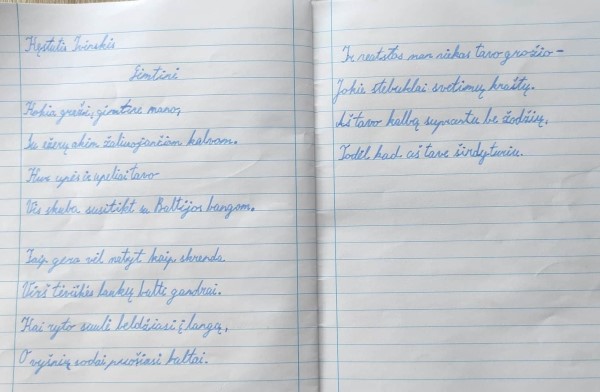 Kęstutis Ivinskis
Gimtinė
Kokia graži, gimtine mano,
Su ežerų akim žaliuojančiom kalvom.
Kur upės ir upeliai tavo
Vis skuba susitikt su Baltijos bangom.
Taip gera vėl matyt kaip skrenda
Virš tėviškės laukų balti gandrai.
Kai ryto saulė beldžiasi į langą,
O vyšnių sodai puošiasi baltai.
Ir neatstos man niekas tavo grožio –
Jokie stebuklai svetimų kraštų.
Aš tavo kalbą suprantu be žodžių,
Todėl kad aš tave širdy turiu.